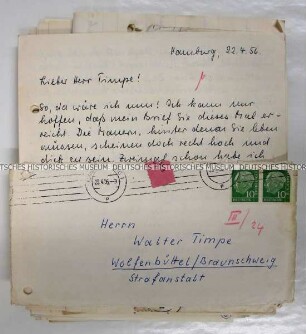 Hamburg, 22.4.56.
Lieber Herr Timpe!
So, da wäre ich nun! Ich kann nur
hoffen, daß mein Brief Sie dieses Mal er-
reicht. Die Mauern, hinter denen Sie leben
müssen, scheinen doch recht hoch und
dick zu sein. Zweimal schon habe ich
DEUTSCHES HISTORISCHES MUSEUM
10
10
III/24
Herrn
Walter Timpe
Wolfenbüttel/Braunschweig
Strafanstalt